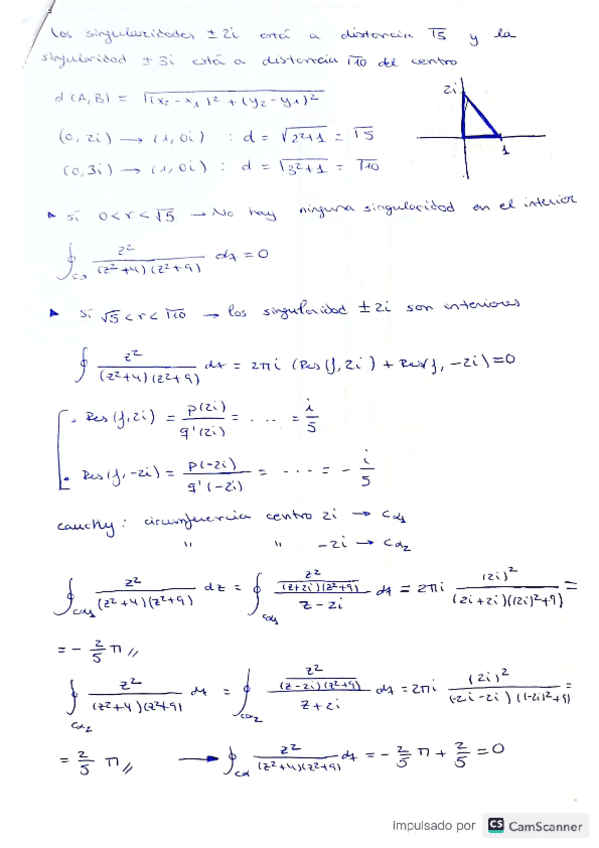 Las singularidades ± 2i está a distancia √5 y la
singularidad ± 3i está a distancia √10 del centro
d(A,B) = √((x₂-x₁)²+(y₂-y₁)²)
2i
(0,2i) → (1,0i) : d = √(2²+1) = √5
1
(0,3i) → (1,0i) : d = √(3²+1) = √10
▸ Si 0<r<√5 → No hay ninguna singularidad en el interior
∮ z²/((z²+4)(z²+9)) dz = 0
▸ Si √5<r<√10 → las singularidad ±2i son interiores
∮ z²/((z²+4)(z²+9)) dz = 2πi (Res(f,2i) + Res(f,-2i)) = 0
· Res(f,2i) = p(2i)/q'(2i) = .... = i/5
· Res(f,-2i) = p(-2i)/q'(-2i) = .... = - i/5
cauchy: circunferencia centro 2i → Cα₁
" " -2i → Cα₂
∮Cα₁ z²/((z²+4)(z²+9)) dz = ∮Cα₁ (z²/((z+2i)(z²+9)))/(z-2i) dz = 2πi (2i)²/((2i+2i)((2i)²+9)) =
= - 2/5 π //
∮Cα₂ z²/((z²+4)(z²+9)) dz = ∮Cα₂ (z²/((z-2i)(z²+9)))/(z+2i) dz = 2πi (2i)²/((-2i-2i)((-2i)²+9)) =
= 2/5 π // → ∮Cα z²/((z²+4)(z²+9)) dz = - 2/5 π + 2/5 = 0
Impulsado por CS CamScanner